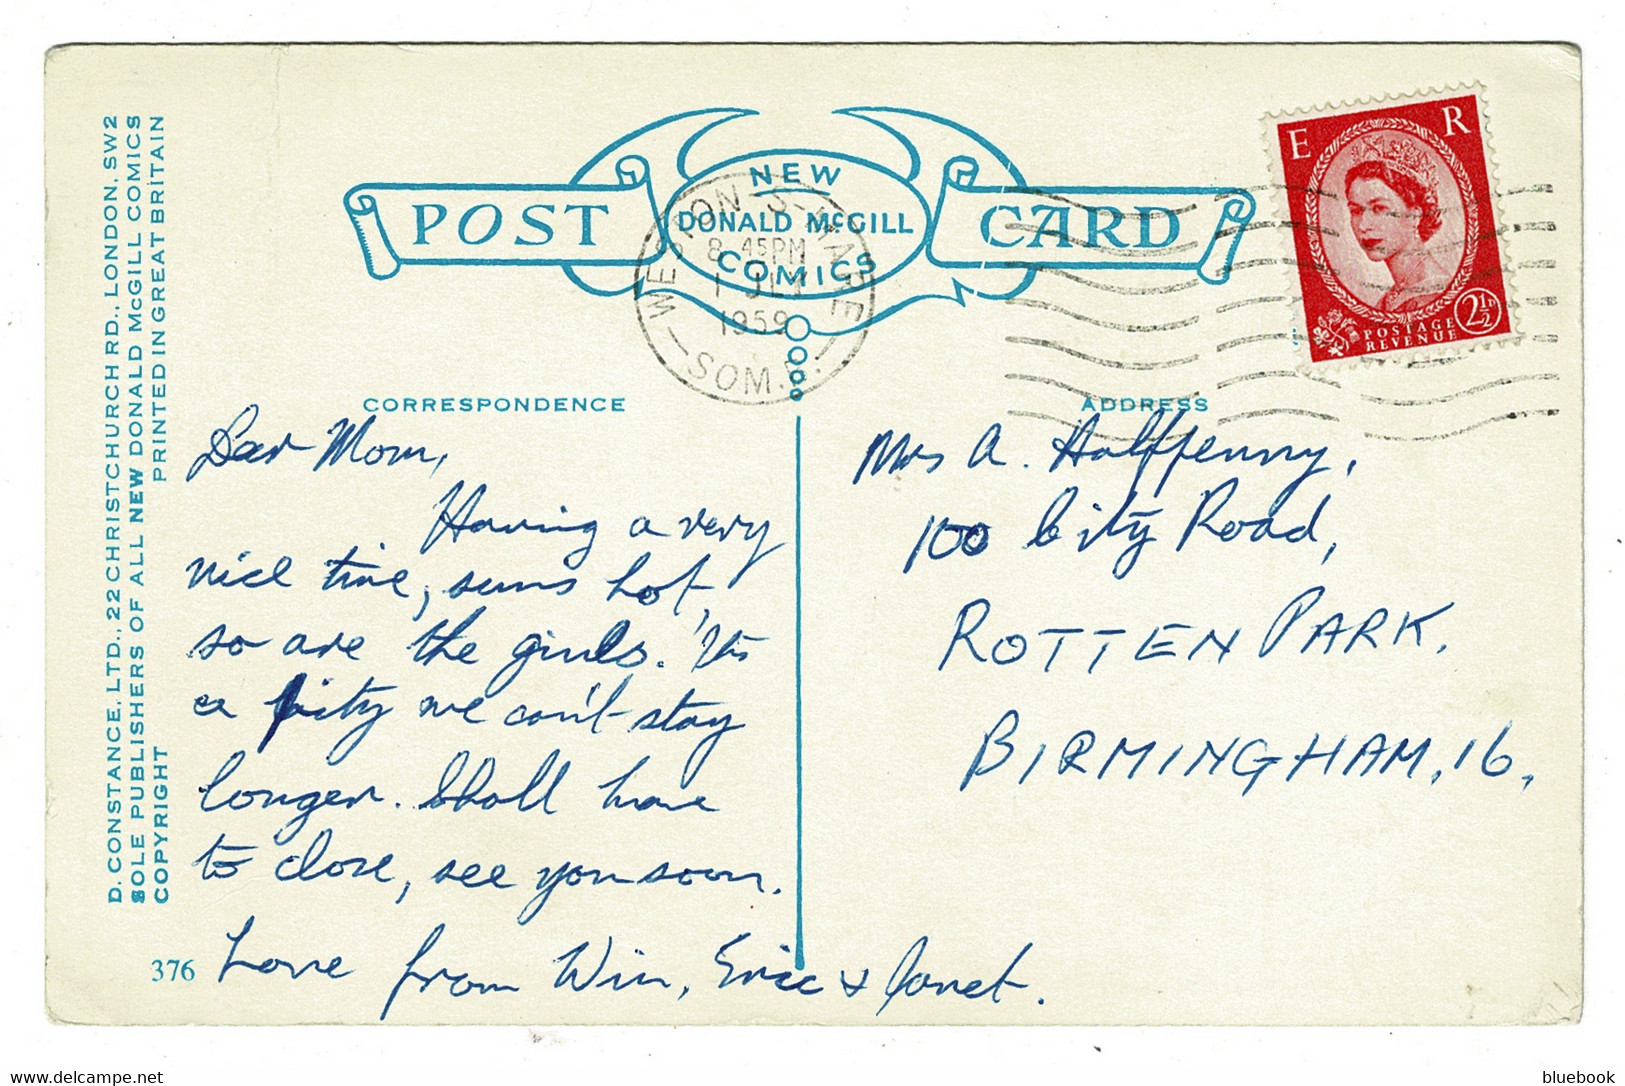 POST
NEW
DONALD McGILL
COMICS
CARD
WESTON-S-MARE
8.45PM
1 JLY
1959
SOM.
E R
POSTAGE
REVENUE
2½D
D. CONSTANCE, LTD., 22 CHRISTCHURCH RD., LONDON, SW2
SOLE PUBLISHERS OF ALL NEW DONALD McGILL COMICS
COPYRIGHT PRINTED IN GREAT BRITAIN
CORRESPONDENCE
Dear Mom,
Having a very
nice time, suns hot,
so are the girls. Its
a pity we can't stay
longer. Shall have
to close, see you soon.
Love from Win, Eric & Janet.
376
ADDRESS
Mrs A. Halfpenny,
100 City Road,
ROTTEN PARK.
BIRMINGHAM, 16,
delcampe.net
bluebook